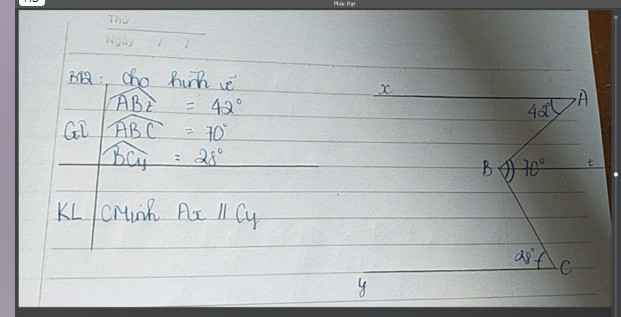 Thứ
Ngày / /
BT2: Cho hình vẽ
GT
ABt = 42°
ABC = 70°
BCy = 28°
KL CMinh Ax // Cy
x
A
42°
B
70°
t
28°
C
y